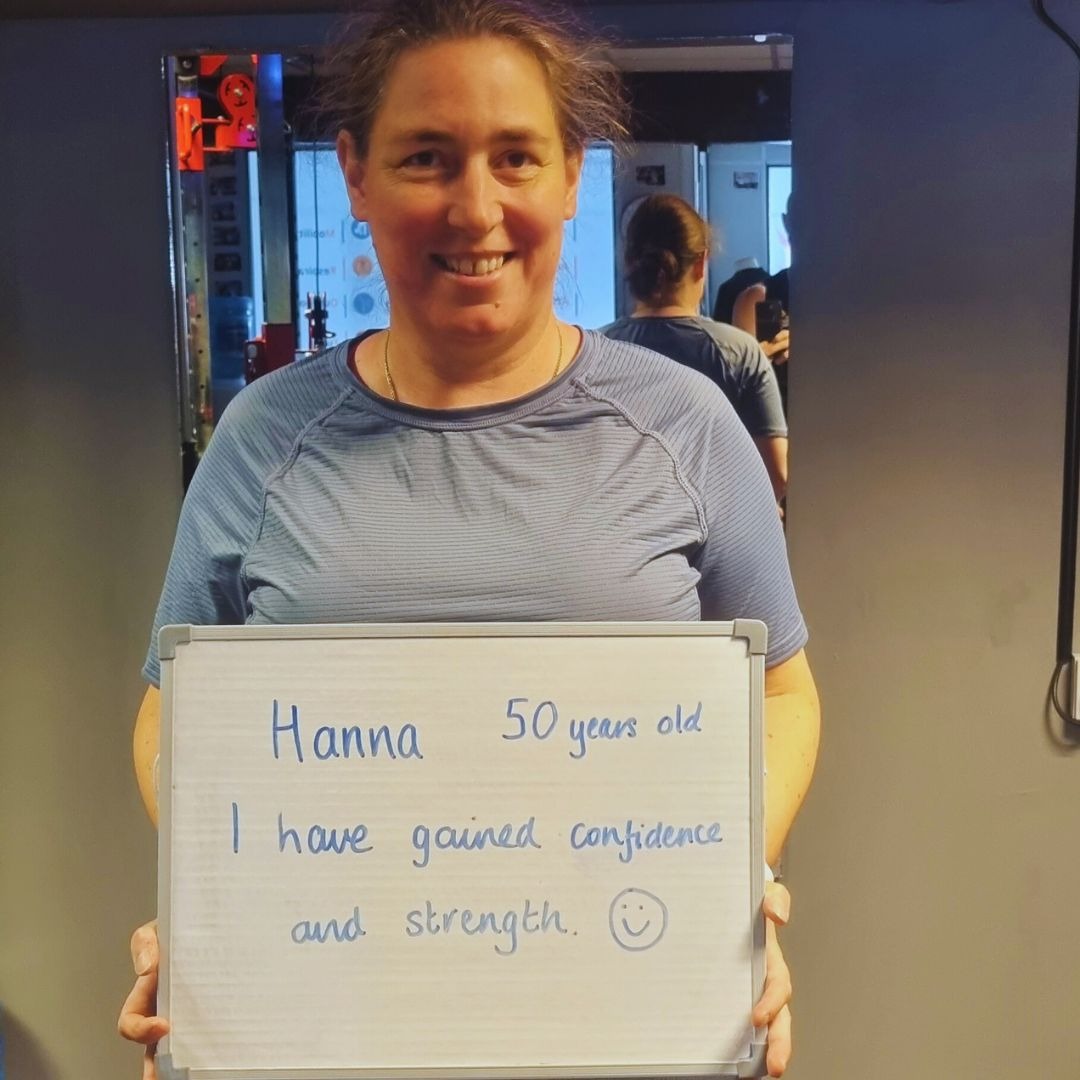 Hanna 50 years old
I have gained confidence
and strength. ☺